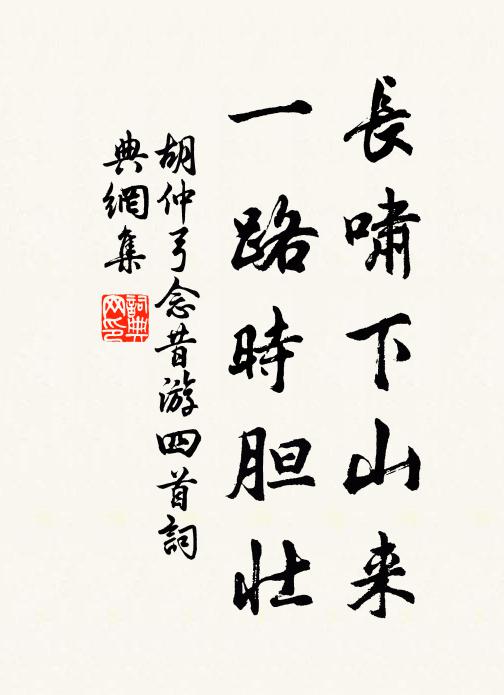 長嘯下山来
一路時胆壮
胡仲弓念昔游四首詞
典網集
詞典
网印